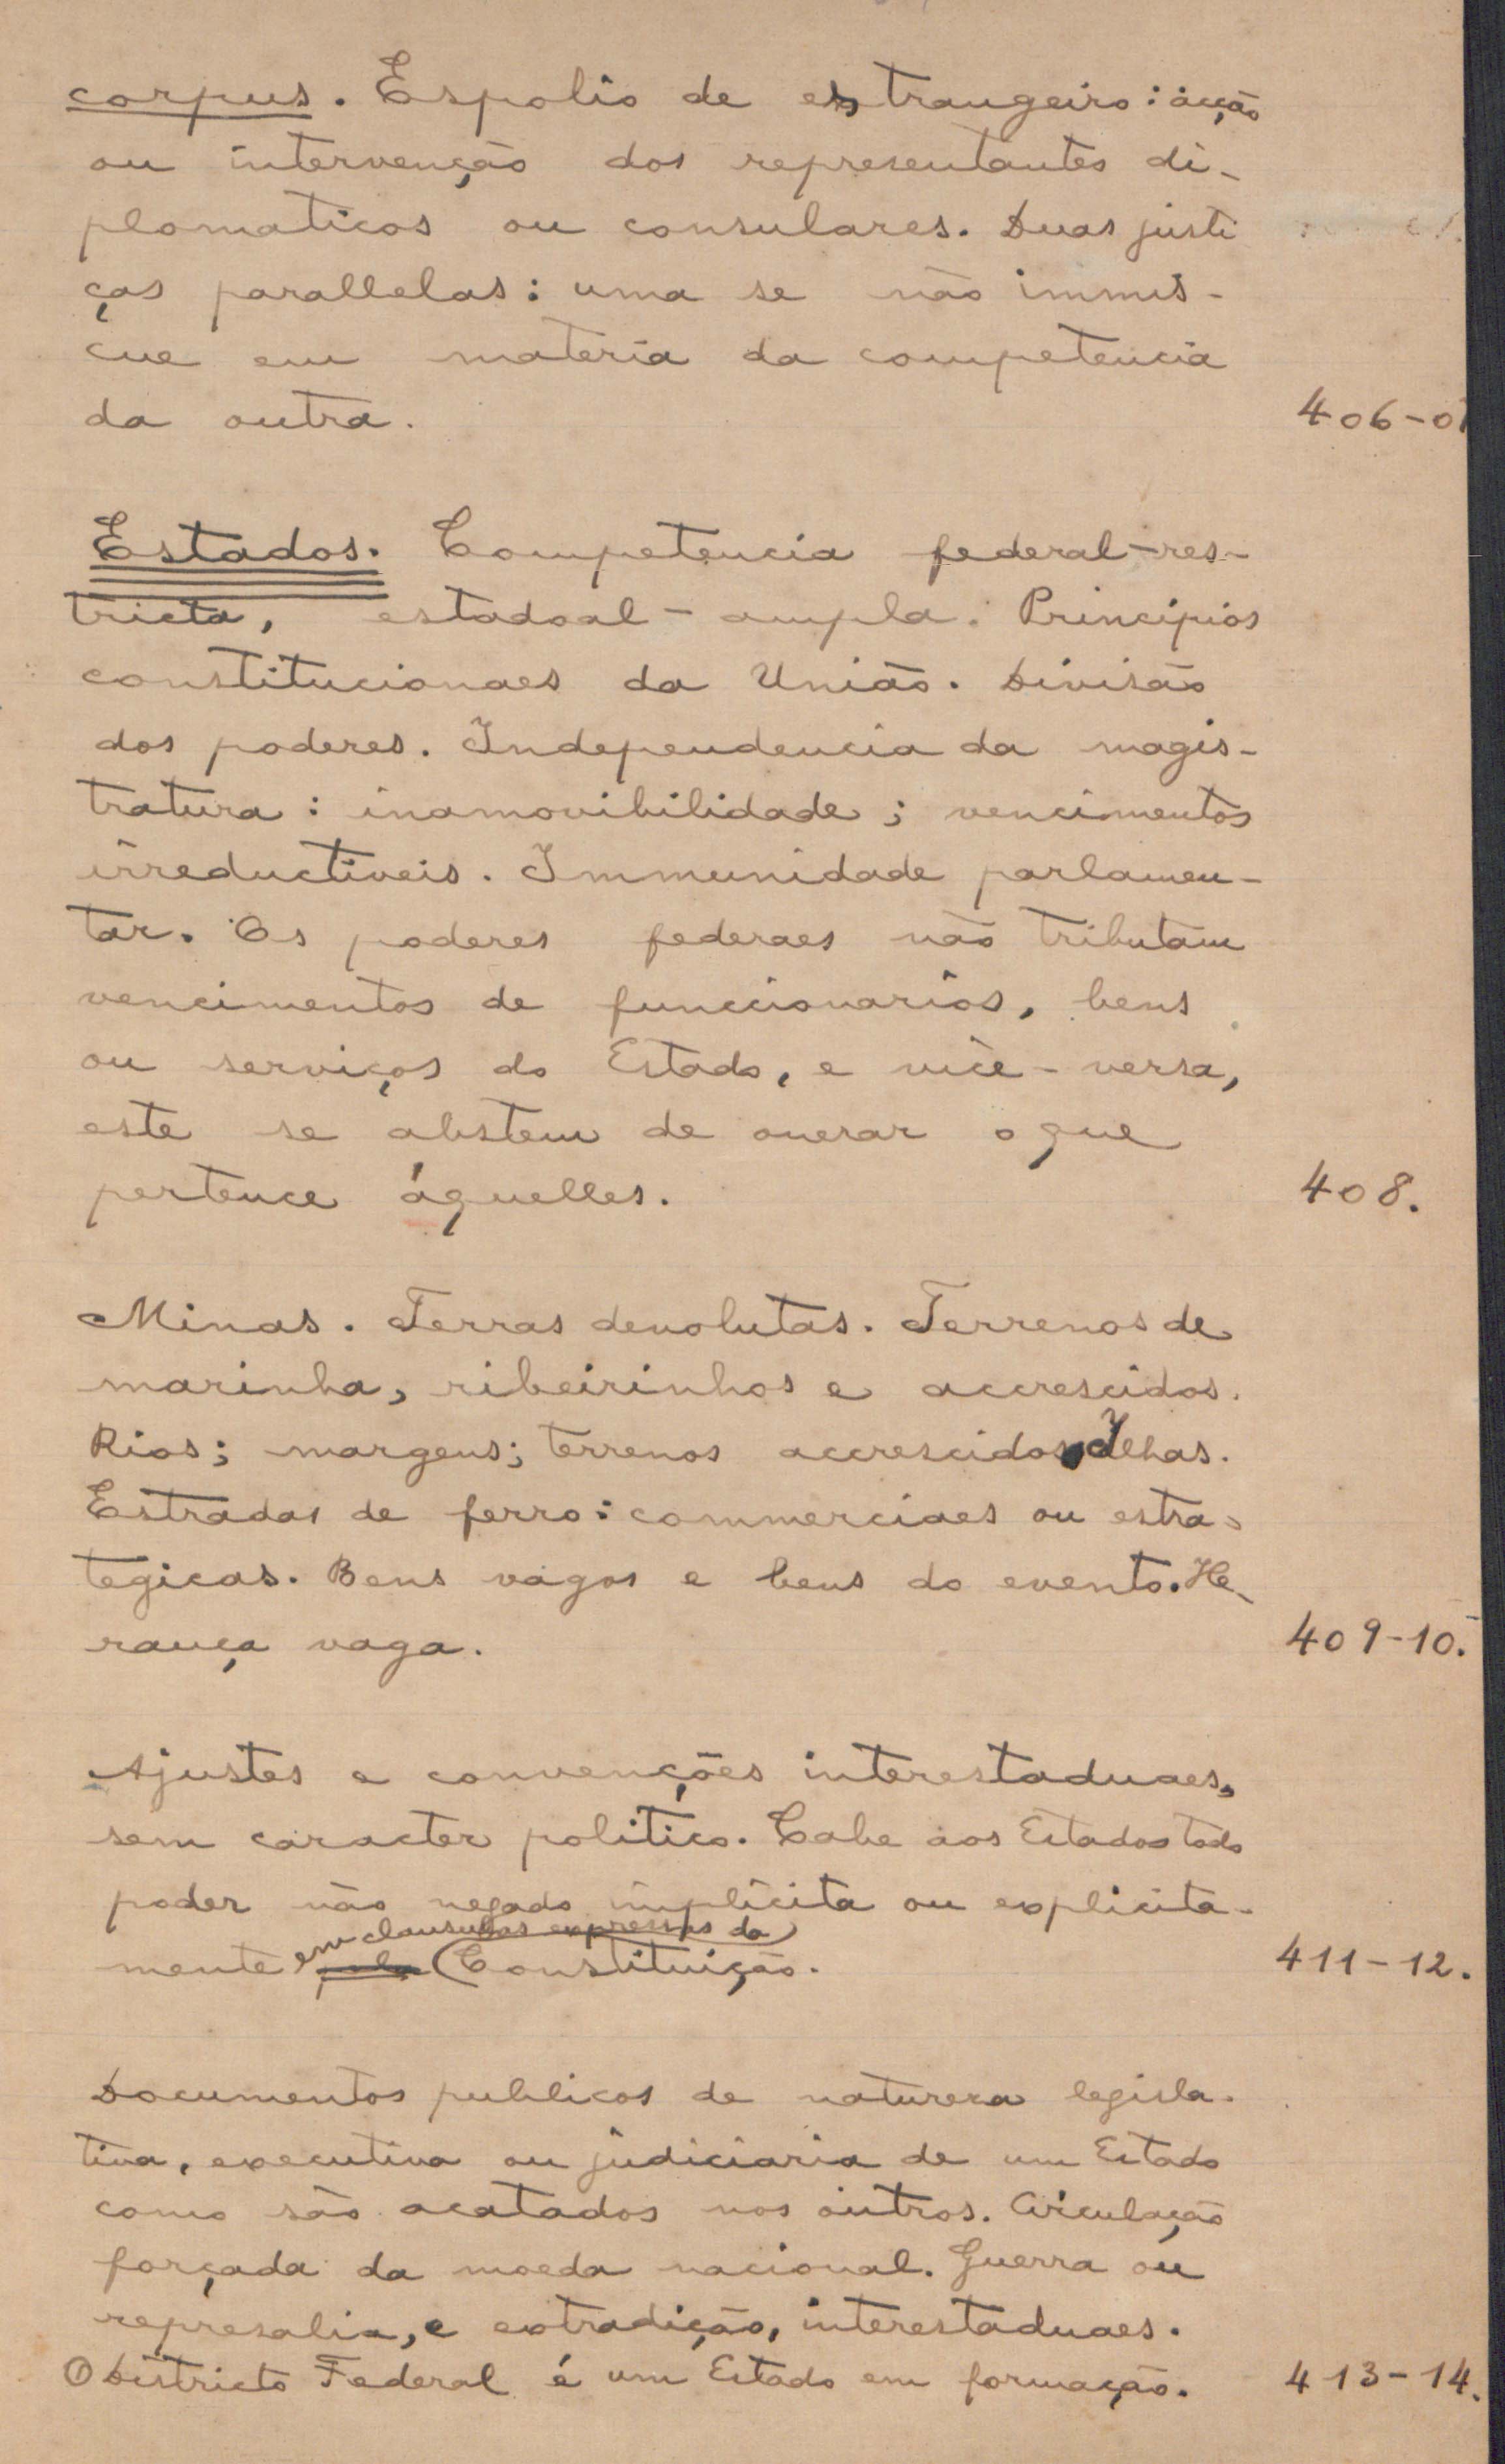 corpus. Espolio de estrangeiro: acção
ou intervenção dos representantes di-
plomaticos ou consulares. Duas justi
ças parallelas: uma se não immis-
cue em materia da competencia
da outra. 406-07
Estados. Competencia federal-res-
tricta, estadoal-ampla. Principios
constitucionaes da União. Divisão
dos poderes. Independencia da magis-
tratura: inamovibilidade; vencimentos
irreductiveis. Immunidade parlamen-
tar. Os poderes federaes não tributam
vencimentos de funccionarios, bens
ou serviços do Estado, e vice-versa,
este se abstem de onerar o que
pertence áquelles. 408.
Minas. Terras devolutas. Terrenos de
marinha, ribeirinhos e accrescidos.
Rios; margens; terrenos accrescidos. Ilhas.
Estradas de ferro: commerciaes ou estra-
tegicas. Bens vagos e bens do evento. He-
rança vaga. 409-10.
Ajustes e convenções interestaduaes,
sem caracter politico. Cabe aos Estados todo
poder não negado implicita ou explicita-
em clausulas expressas da
mente pela Constituição. 411-12.
Documentos publicos de natureza legisla-
tiva, executiva ou judiciaria de um Estado
como são acatados nos outros. Circulação
forçada da moeda nacional. Guerra ou
represalia, e extradição, interestaduaes.
O Districto Federal é um Estado em formação. 413-14.